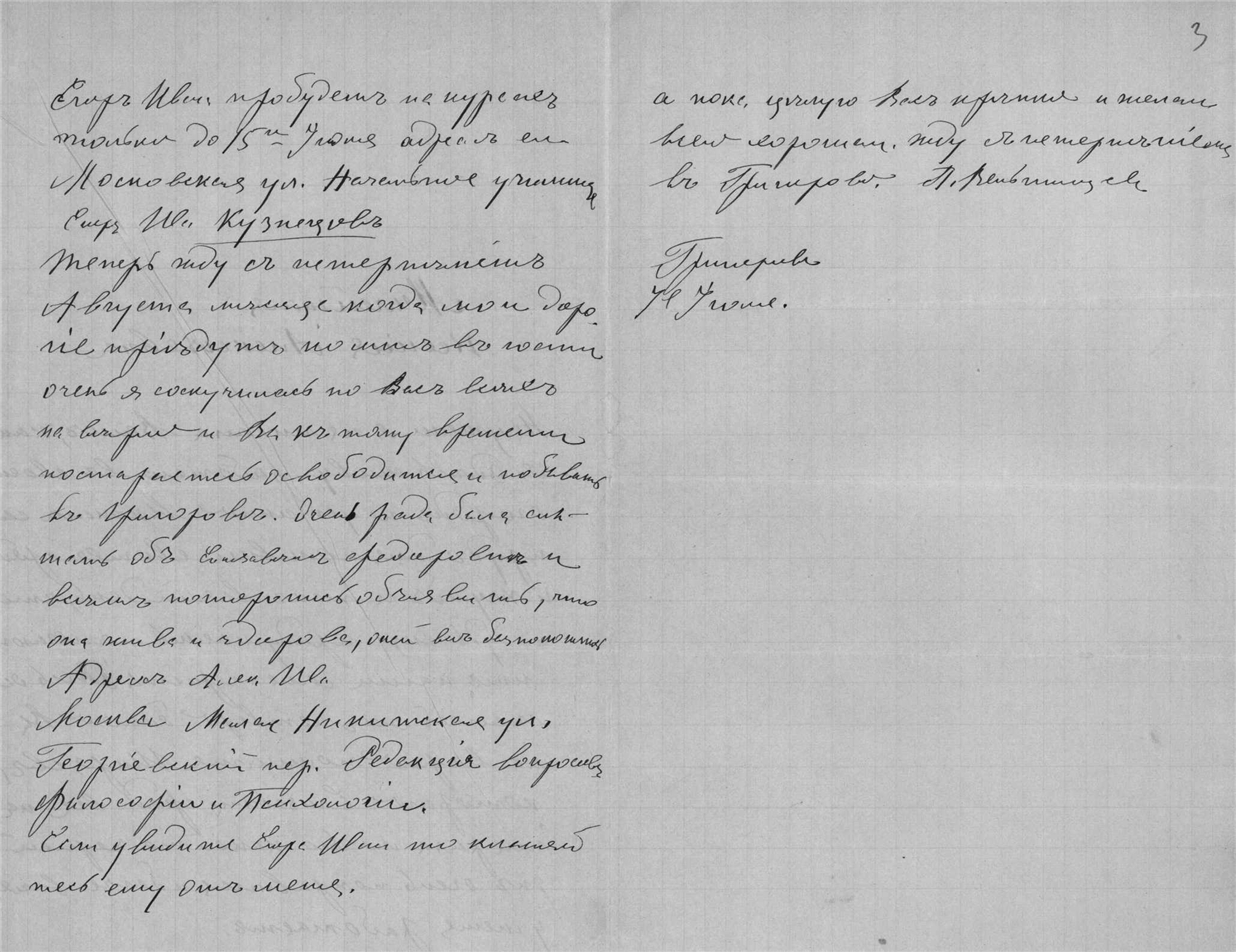 3
Егоръ Иван. пробудетъ на курсахъ
только до 15го Iюня адресъ его
Московская ул. Начальное училище
Егору Ив. Кузнецовъ
Теперь жду съ нетерпѣнiемъ
Августа мѣсяца когда мои доро-
гiе прiѣдутъ ко мнѣ въ гости
очень я соскучилась по Васъ всѣхъ
на вѣрно и Вы къ тому времени
постараетесь освободится и побывать
въ Григоровѣ. Очень рада была слы-
шать объ Елизаветѣ Федоровнѣ и
всѣмъ поторопись объявить, что
она жива и здорова, о ней всѣ безпокоились
Адресъ Алек. Ив.
Москва Малая Никитская ул.
Георгiевскiй пер. Редакцiя вопросовъ
Философiи и Психологiи.
Если увидите Егора Иван то кланяй
тесь ему отъ меня.
а пока, цѣлую Васъ крѣпко и желаю
всего хорошаго. жду съ нетерпѣнiемъ
въ Григорово.
Григорово
Iюня.